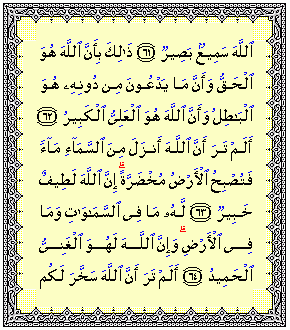 ٱللَّهَ سَمِيعٌۢ بَصِيرٌ ﴿٦١﴾ ذَٰلِكَ بِأَنَّ ٱللَّهَ هُوَ
ٱلْحَقُّ وَأَنَّ مَا يَدْعُونَ مِن دُونِهِۦ هُوَ
ٱلْبَٰطِلُ وَأَنَّ ٱللَّهَ هُوَ ٱلْعَلِىُّ ٱلْكَبِيرُ ﴿٦٢﴾
أَلَمْ تَرَ أَنَّ ٱللَّهَ أَنزَلَ مِنَ ٱلسَّمَآءِ مَآءً
فَتُصْبِحُ ٱلْأَرْضُ مُخْضَرَّةً ۗ إِنَّ ٱللَّهَ لَطِيفٌ
خَبِيرٌ ﴿٦٣﴾ لَّهُۥ مَا فِى ٱلسَّمَٰوَٰتِ وَمَا
فِى ٱلْأَرْضِ ۗ وَإِنَّ ٱللَّهَ لَهُوَ ٱلْغَنِىُّ
ٱلْحَمِيدُ ﴿٦٤﴾ أَلَمْ تَرَ أَنَّ ٱللَّهَ سَخَّرَ لَكُم